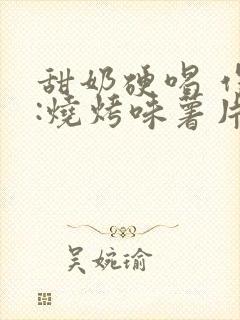 甜奶硬唱
:燒烤味薯片
吴婉瑜